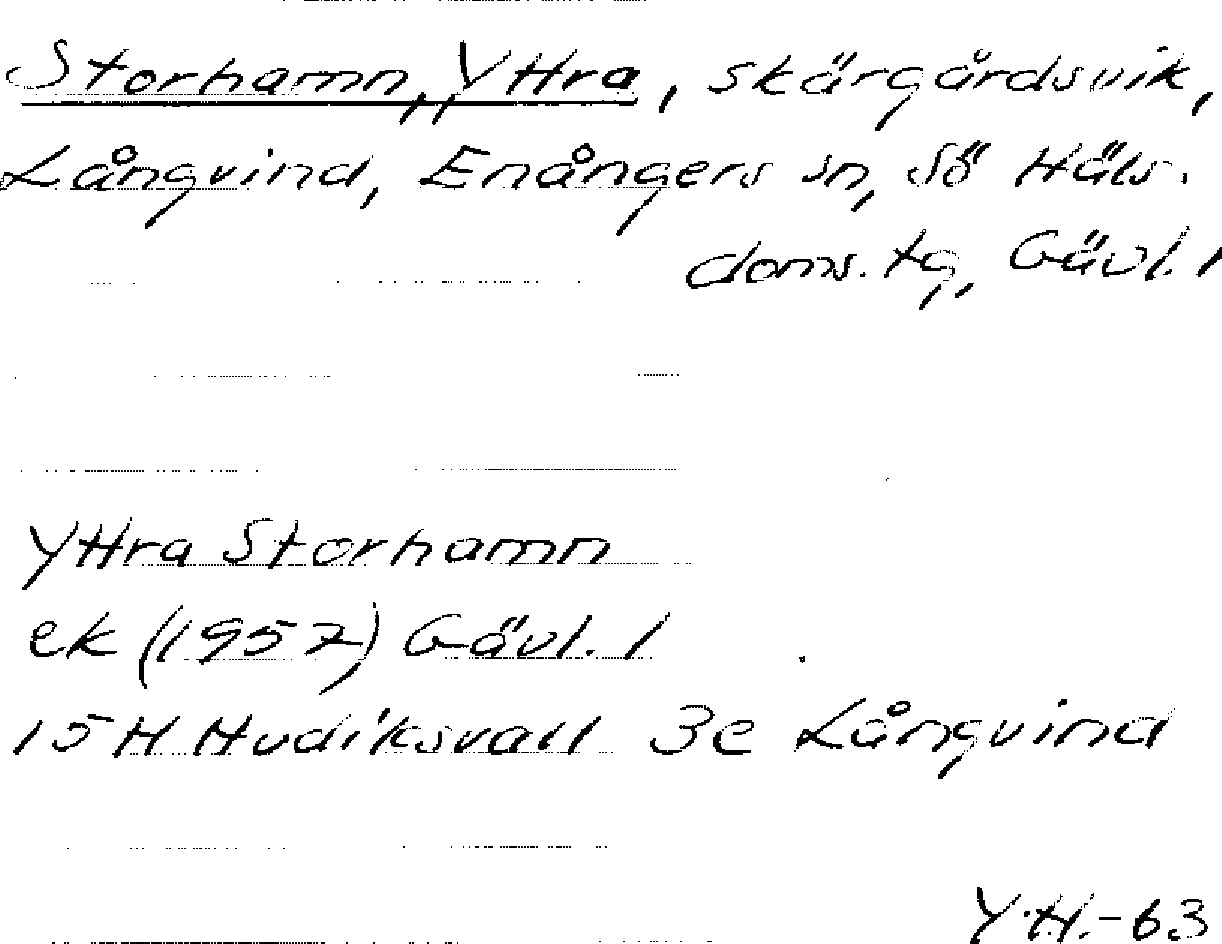 Storhamn, Yttra, skärgårdsvik,
Långvind, Enångers sn, Sö Häls.
doms. tg, Gävl. l
Yttra Storhamn
ek (1957) Gävl. l
15H Hudiksvall 3e Långvind
Y.H.-63